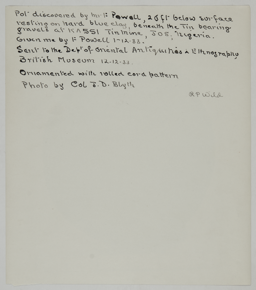 Pot discovered by Mr F Powell, 26ft below surface
resting on hard blue clay, beneath the tin bearing
gravels at KASSI Tin Mine, JOS, Nigeria.
Given me by F Powell 1-12-33.
Sent to the Dept of Oriental Antiquities & Ethnography
British Museum 12.12.33
Ornamented with rolled cord pattern
Photo by Col J. D. Blyth